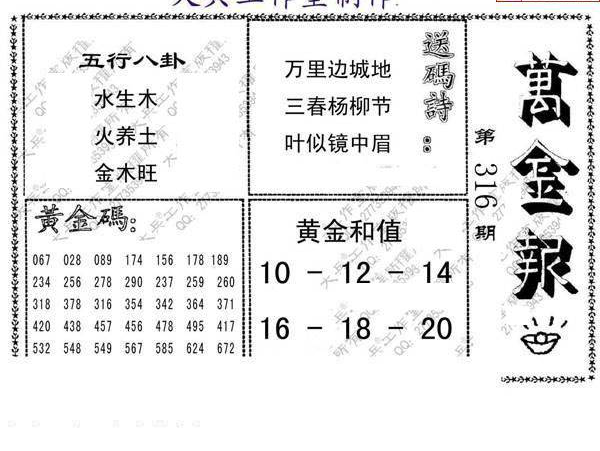 五行八卦
水生木
火养土
金木旺
送碼詩:
万里边城地
三春杨柳节
叶似镜中眉
萬金報
第316期
黃金碼:
067 028 089 174 156 178 189
234 256 278 290 237 259 260
318 378 316 354 342 364 371
420 438 457 456 478 495 417
532 548 549 567 585 624 672
黄金和值
10 - 12 - 14
16 - 18 - 20